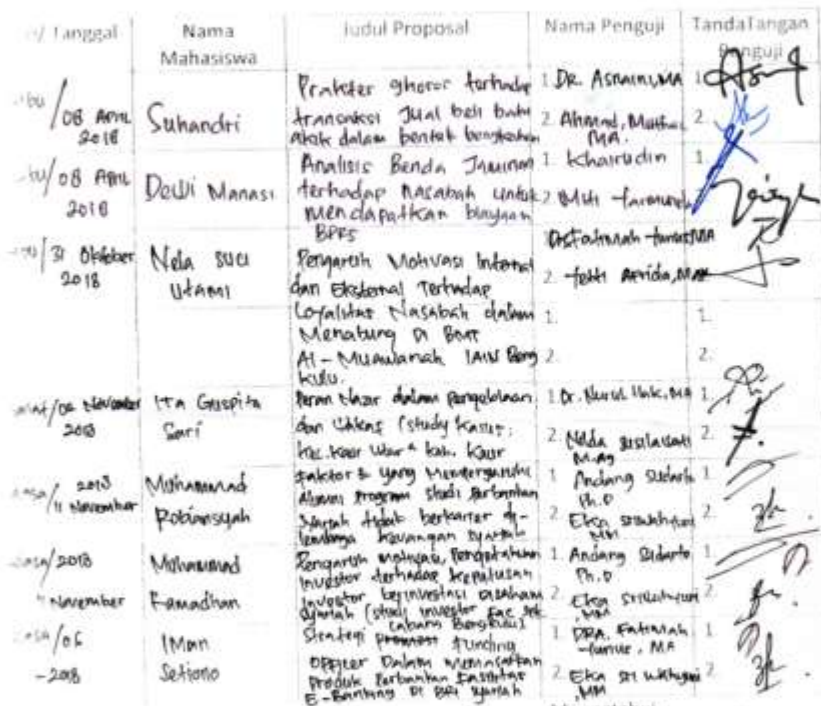 Tanggal
Nama Mahasiswa
Judul Proposal
Nama Penguji
Tanda Tangan Penguji
08 April 2018
Suhandri
Praktek ghoror terhadap
transaksi Jual beli batu
akik dalam bentuk bongkahan
1. DR. Asnaini, MA
2. Ahmad, MA.
1.
2.
08 April 2018
Dewi Manasi
Analisis Benda Jaminan
terhadap Nasabah untuk
mendapatkan
BPRS
1. Khairudin
2.
1.
31 Oktober 2018
Nela suci
Utami
Pengaruh Motivasi Internal
dan Eksternal Terhadap
Loyalitas Nasabah dalam
Menabung Di BMT
Al-Muawanah IAIN Beng
kulu.
2. Yetti Afrida, MAK
1.
2.
1.
2.
November 2018
ITA Guspita
Sari
Peran Nazir dalam Pengelolaan
dan Wakaf (study kasus:
kec. Kaur Utara kab. Kaur
1. Dr. Nurul Hak, MA
2. Nilda Susilawati
M.Ag
1.
2.
2018
11 November
Muhammad
Robiansyah
Faktor2 Yang Mempengaruhi
Alumni Program Studi Perbankan
Syariah tidak berkarier di-
lembaga keuangan syariah
1. Andang Sudarto
Ph.D
2. Eka Sriwahyuni
MM
1.
2.
2018
November
Muhammad
Ramadhan
Pengaruh motivasi, Pengetahuan
Investor terhadap keputusan
Investor berinvestasi Disaham
syariah (studi investor
cabang Bengkulu)
1. Andang Sudarto
Ph.D
2. Eka Sriwahyuni
, MM
1.
2.
/06
-2018
IMan
Setiono
Strategi Funding
Officer Dalam Memasarkan
Produk Perbankan Fasilitas
E-Banking Di BRI Syariah
1. DRA. Fatimah
Yunus, MA
2. Eka Sri wahyuni
, MM
1.
2.